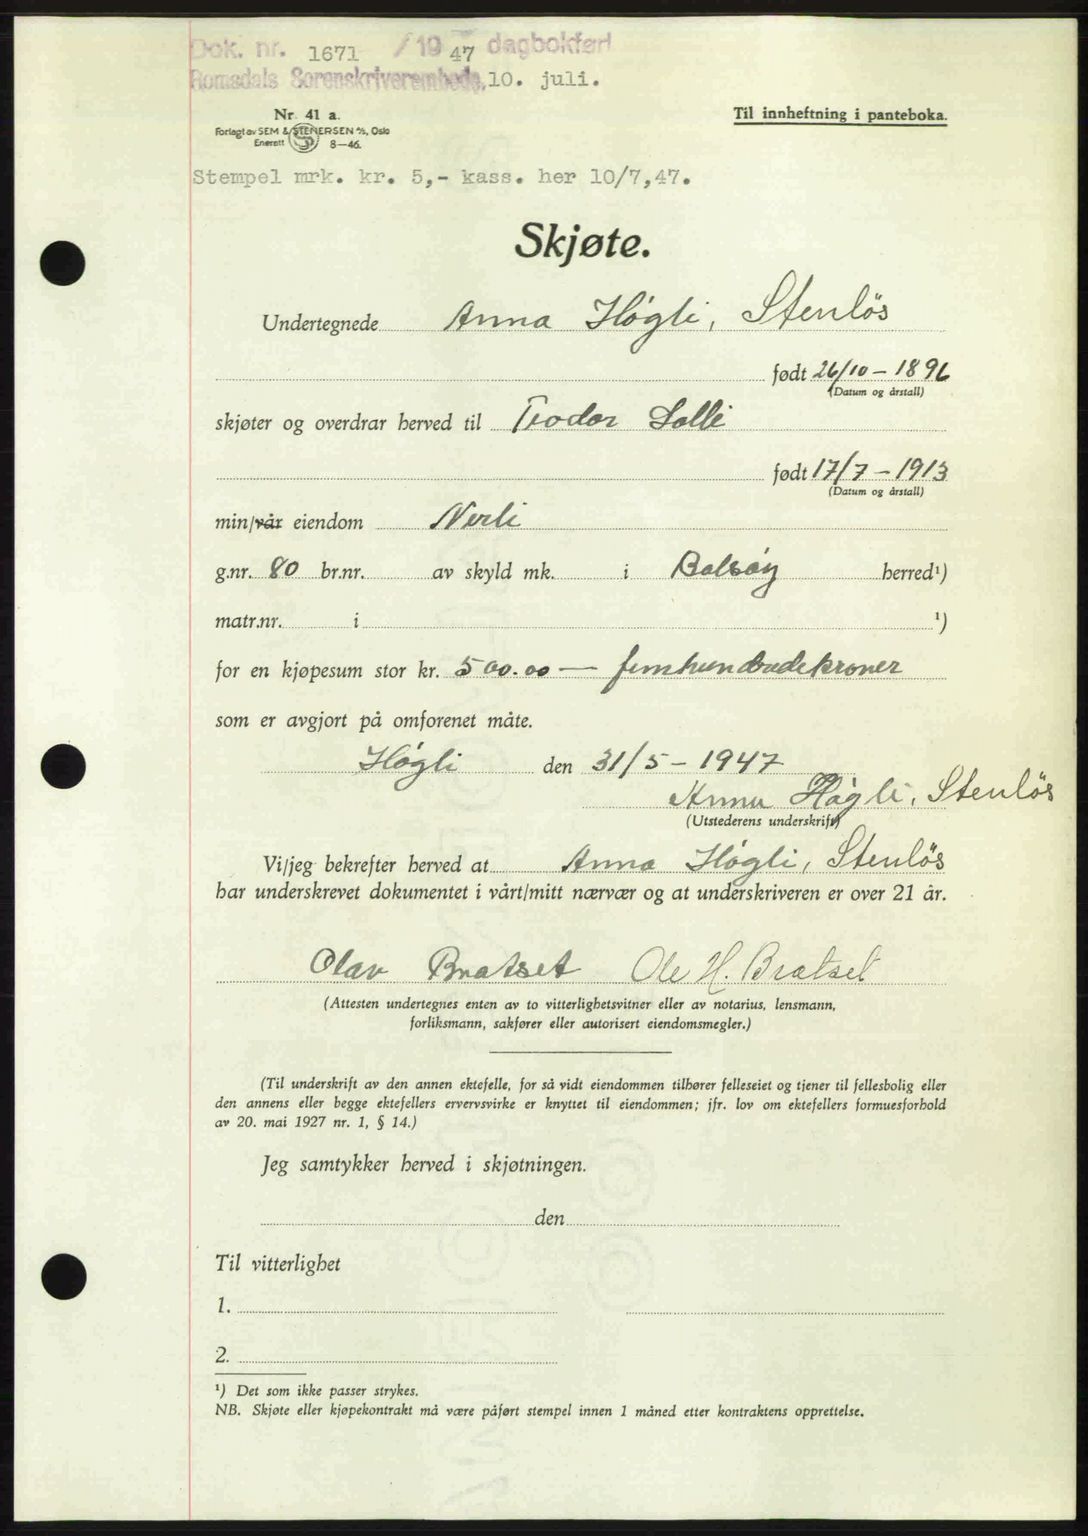 Dok. nr. 1671 / 19 47 dagbokført
Romsdals Sorenskriverembede, 10. juli.
Nr. 41 a.
Forlagt av SEM & STENERSEN A/S, Oslo
Enerett 8—46.
Til innheftning i panteboka.
Stempel mrk. kr. 5,- kass. her 10/7,47.
Skjøte.
Undertegnede Anna Høgli, Stenlös
født 26/10 - 1896
(Datum og årstall)
skjøter og overdrar herved til Teodor Solli
født 17/7 - 1913
(Datum og årstall)
min/vår eiendom Nerli
g.nr. 80 br.nr. av skyld mk. i Bolsøy herred¹)
matr.nr. i ¹)
for en kjøpesum stor kr. 500.00 — femhundradekroner
som er avgjort på omforenet måte.
Høgli den 31/5 - 1947
Anna Høgli, Stenlös
(Utstederens underskrift)
Vi/jeg bekrefter herved at Anna Høgli, Stenlös
har underskrevet dokumentet i vårt/mitt nærvær og at underskriveren er over 21 år.
Olav Bratset Ole H. Bratset
(Attesten undertegnes enten av to vitterlighetsvitner eller av notarius, lensmann,
forliksmann, sakfører eller autorisert eiendomsmegler.)
(Til underskrift av den annen ektefelle, for så vidt eiendommen tilhører felleseiet og tjener til fellesbolig eller
den annens eller begge ektefellers ervervsvirke er knyttet til eiendommen; jfr. lov om ektefellers formuesforhold
av 20. mai 1927 nr. 1, § 14.)
Jeg samtykker herved i skjøtningen.
den
Til vitterlighet
1.
2.
¹) Det som ikke passer strykes.
NB. Skjøte eller kjøpekontrakt må være påført stempel innen 1 måned etter kontraktens opprettelse.